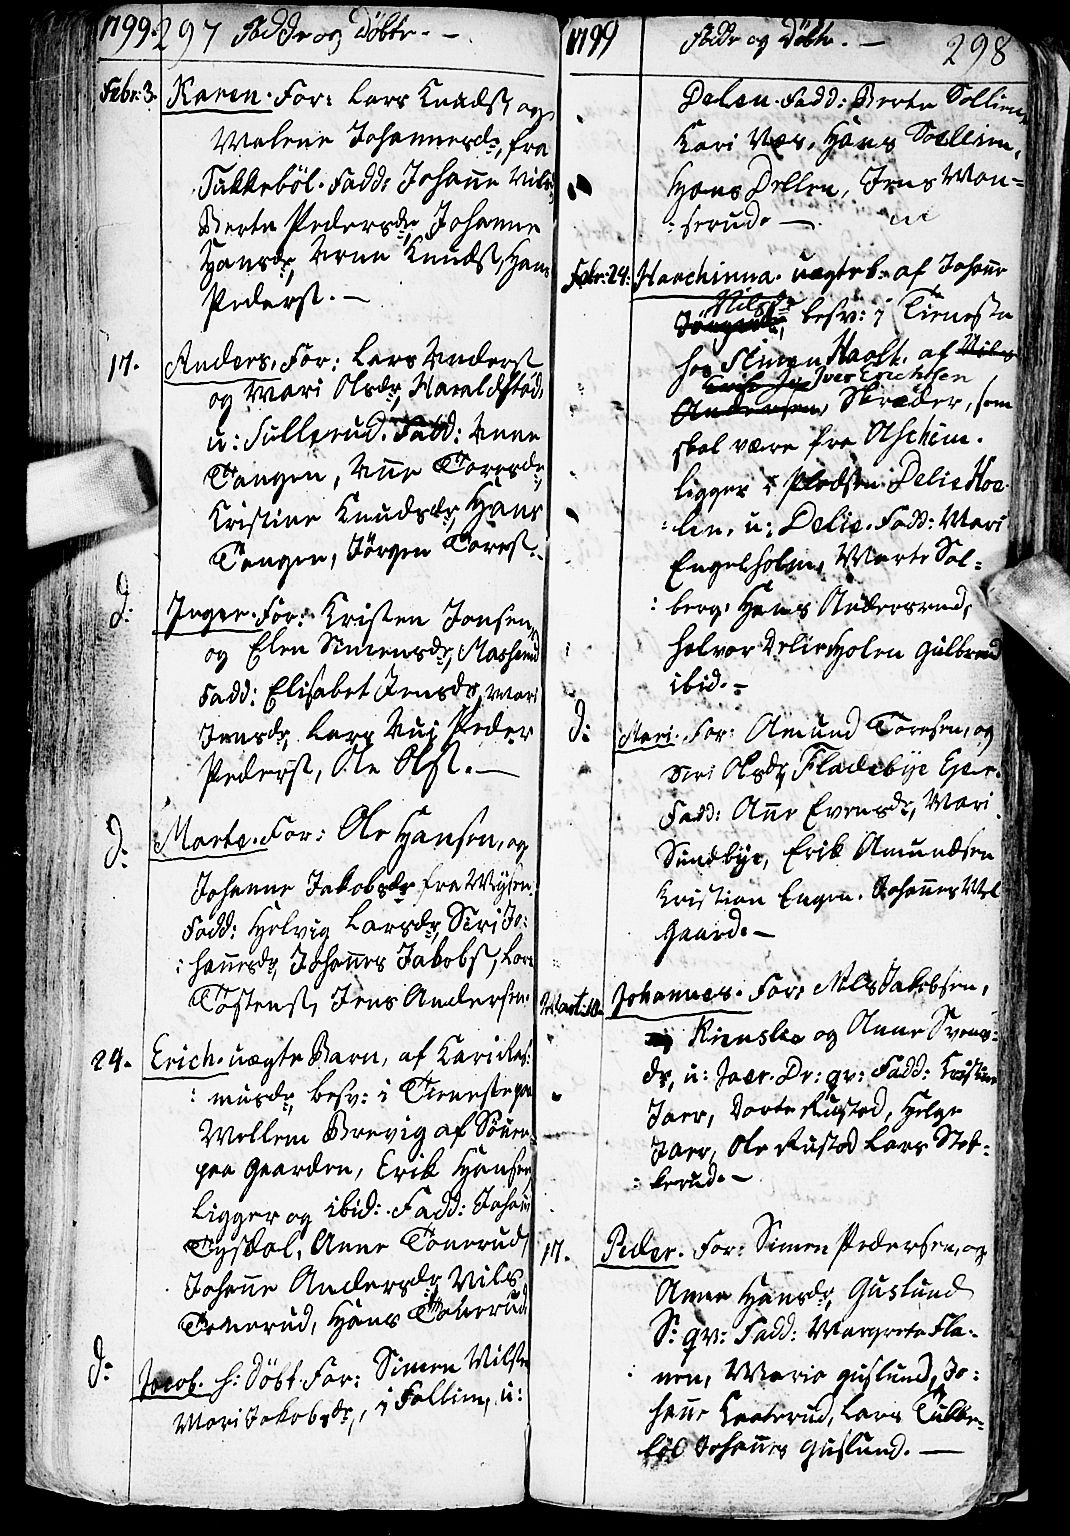 1799. 297 Fødde og Døbte. -
Febr: 3. Karen. For: Lars Knuds: og
Malene Johannesdr, fra
Tukkeböl. Fadd: Johanne Nils
Berte Pedersdr, Johanne
Hansdr, Arne Knuds, Hans
Peders. -
17. Anders. For: Lars Anders
og Mari Olsdr, Haraldstad,
u: Sullerud. Fadd: Anne
Tangen, Anne Toresdr,
Kristine Knudsdr, Hans
Tangen, Jörgen Tores.
d: Inger. For: Kristen Jonsen
og Elen Simensdr,
Fadd: Elisabet Jensdr, Mari
Jensdr, Lars Peder
Peders, Ole Ols. -
d: Marte. For: Ole Hansen, og
Johanne Jakobsdr fra Mysen.
Fadd: Helvig Larsdr, Siri Jo:
:hannesdr, Johannes Jakobs, Lars
Tostens, Jens Andersen.
24. Erich. uægte Barn, af Kari Ras:
:musdr, besv: i Tieneste paa
Mellem Brevig af Söner
paa Gaarden, Erik Hansen
Ligger og ibid: Fadd: Johan
Tysdal, Anne Tonerud,
Johanne Andersdr, Nils
Tonerud, Hans Tonerud
d: Jacob. h: Döbt. For: Simen Nils
Mari Jakobsdr, i Follim, u:
1799 Fødde og Døbte. - 298
Delen. Fadd: Berte Sollim
Kari Næs, Hans Sollim,
Hans Dellen, Jens Mon=
:serud. -
Febr: 24: Haachinna. uægteb: af Johanne
Nilsdr
besv: i Tieneste
hos Simen Haøle. af Nils
Iver Erichsen
Andersen, Skræder, som
skal være fra Aschim.
ligger i Pladsen Delie Hoe
:len, u: Delie. Fadd: Mari
Engelsholm, Marte Sol=
:berg, Hans Andersrud,
Halvor Delie Holen Gulbrand
ibid. -
d: Mari. For: Amund Toresen, og
Siri Olsdr Fladebye Eier.
Fadd: Anne Evensdr, Mari
Sundbye, Erik Amundsen
Kristian Engen. Johannes
Gaard. -
Mart: 10. Johannes. For: Nils Jakobsen,
og Anne Svens:
dr, u: Jaer. Dr: qv: Fadd: Kristine
Jaer, Dorte Rustad, Helge
Jaer, Ole Rustad Lars Stik:
:kerud. -
17. Peder. For: Simen Pedersen, og
Anne Hansdr, Guslund
S: qv: Fadd: Margrete Fla-
nen, Marie Guslund, Jo:
hanne Kaaterud, Lars Tukke=
böl Johannes Guslund. -